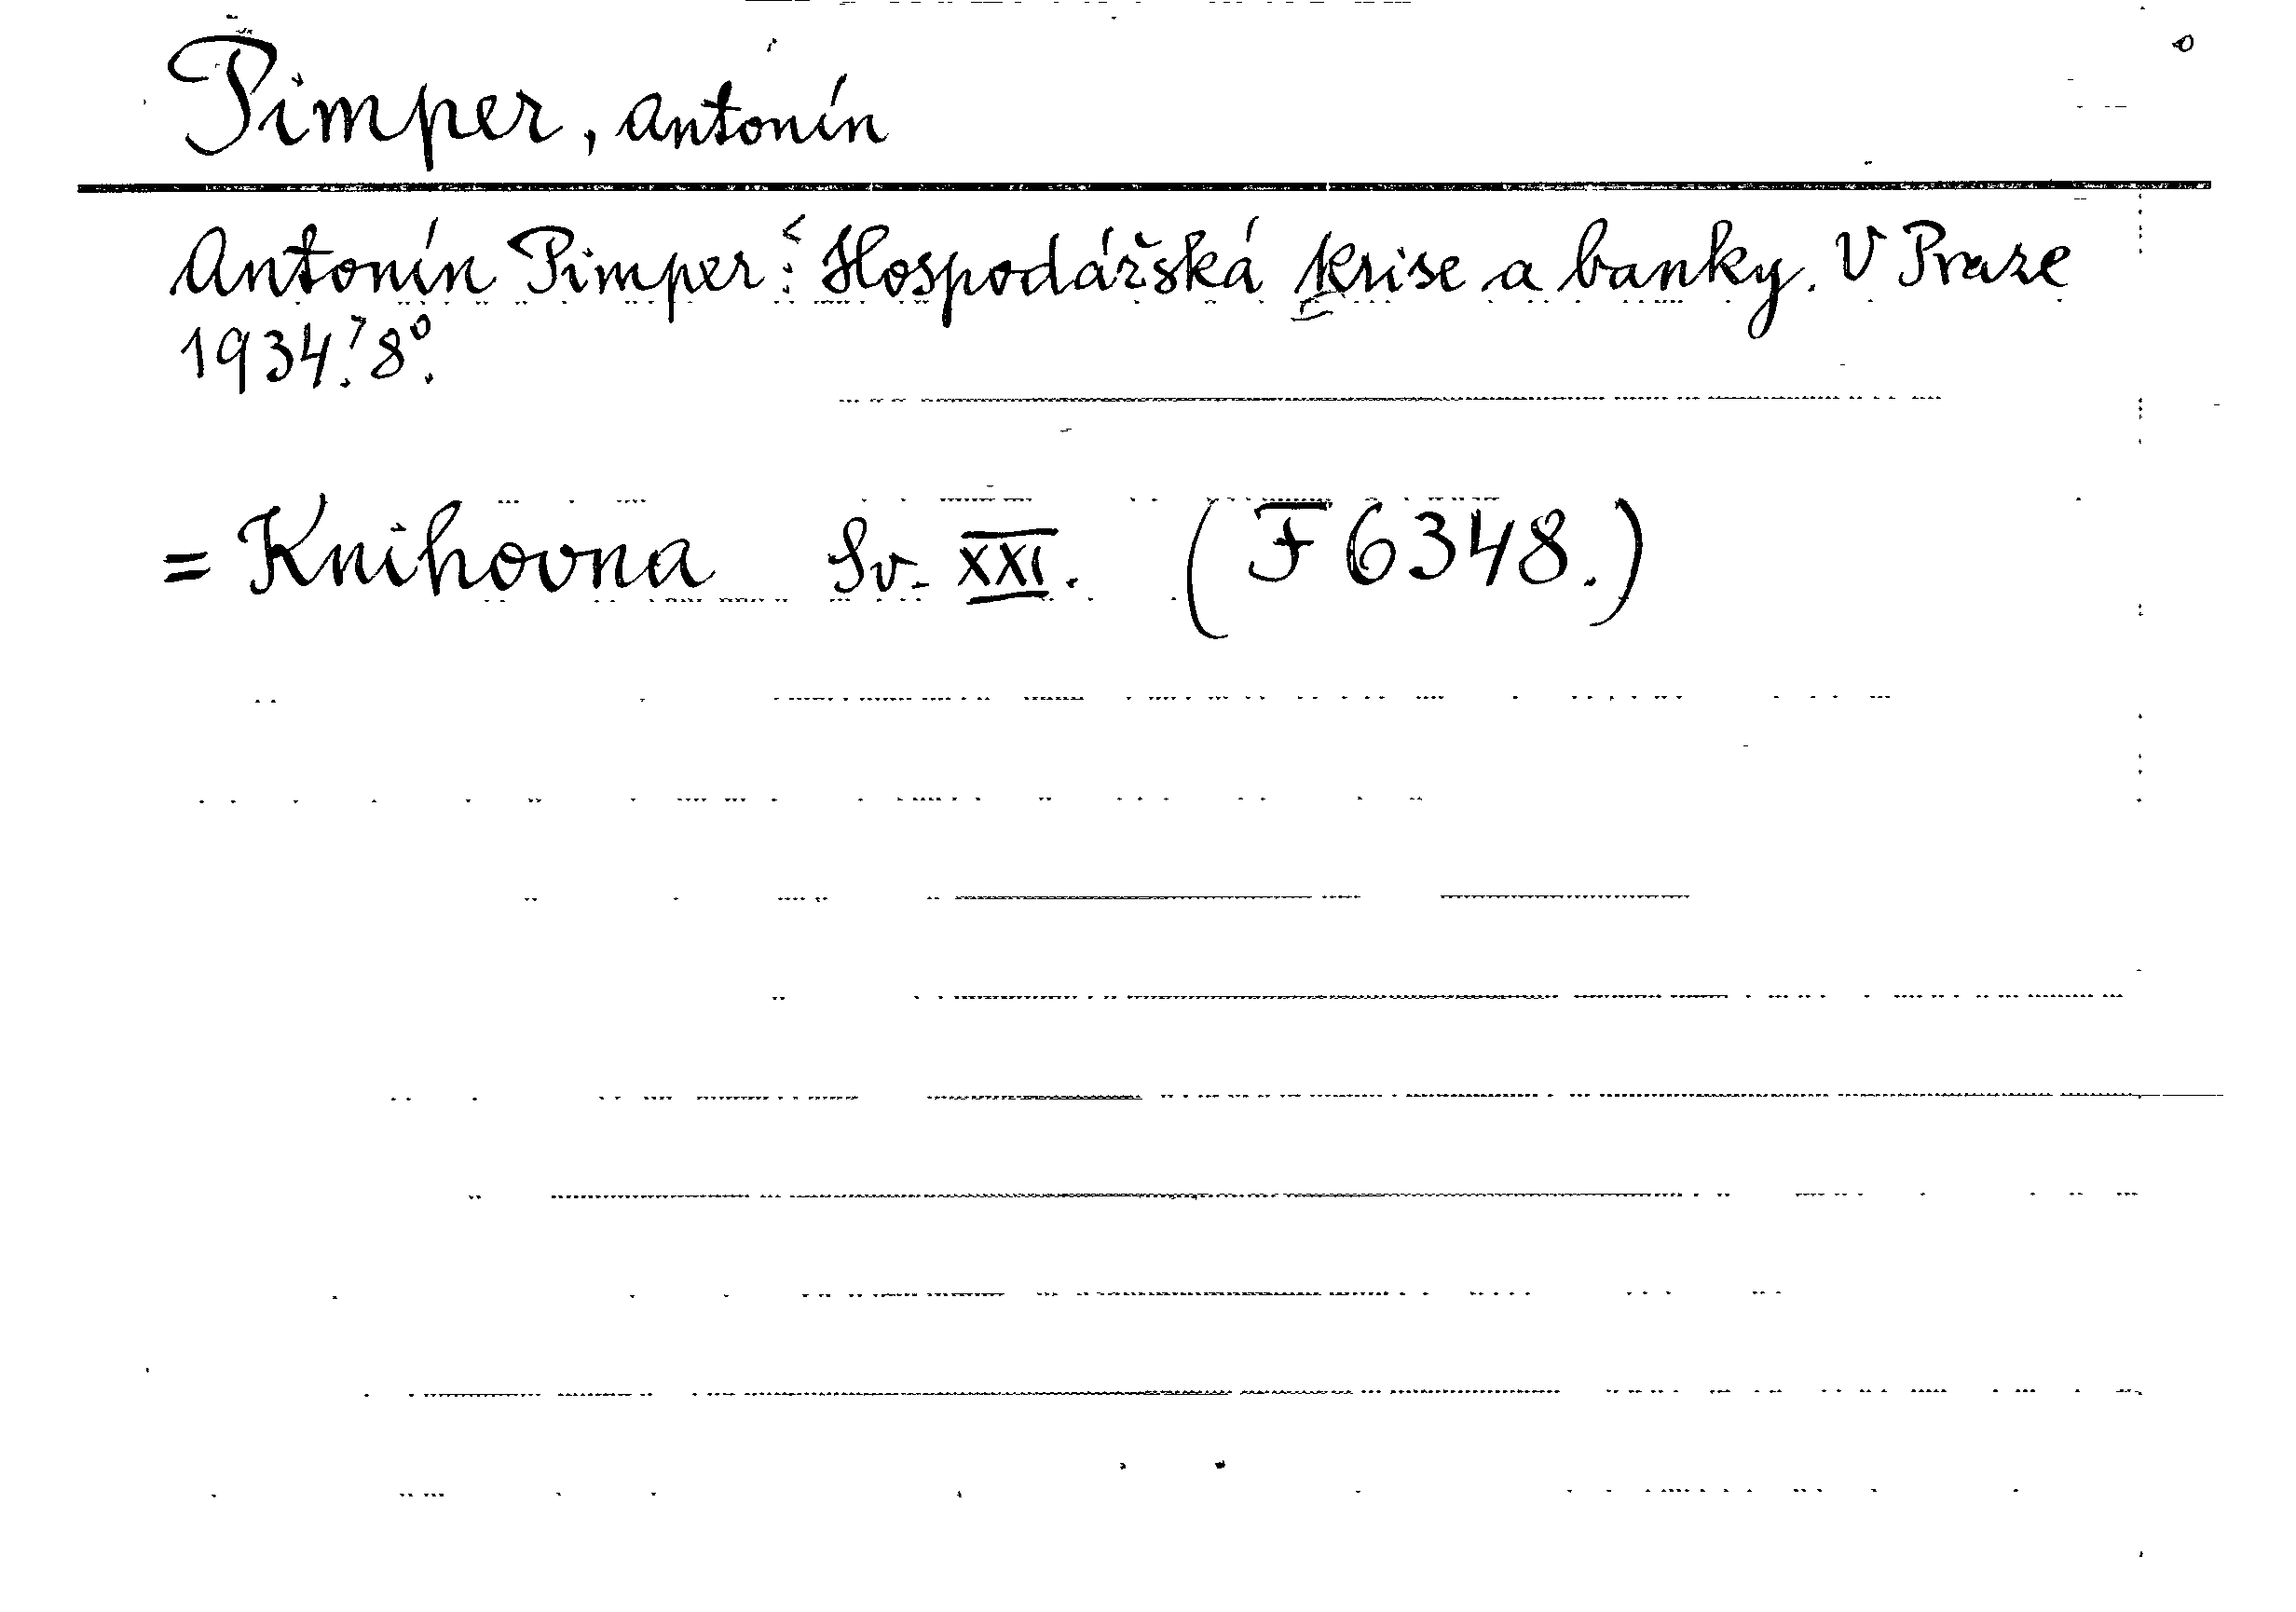 Pimper, Antonín
Antonín Pimper: Hospodářská krise a banky. V Praze
1934. 8°.
= Knihovna Sv. XXI. (F 6348.)